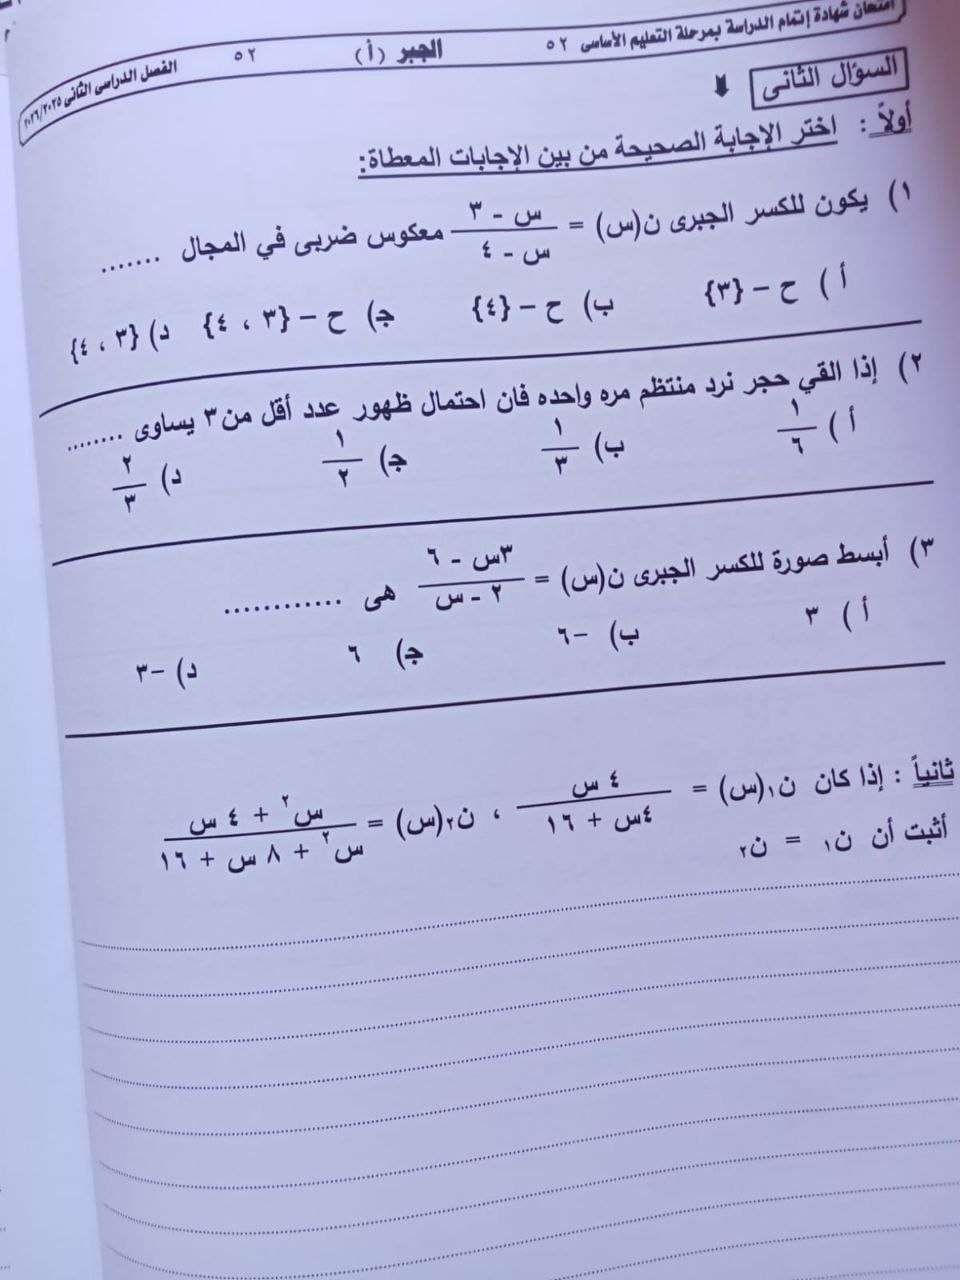 امتحان شهادة إتمام الدراسة بمرحلة التعليم الأساسى ٥٢ الجبر (أ) ٥٢ الفصل الدراسى الثانى ٢٠٢٦/٢٠٢٥
السؤال الثانى
أولاً : اختر الإجابة الصحيحة من بين الإجابات المعطاة:
١) يكون للكسر الجبرى ن(س) = (س - ٣)/(س - ٤) معكوس ضربى في المجال .......
أ ) ح – {٣} ب) ح – {٤} ج) ح – {٣ ، ٤} د) {٣ ، ٤}
٢) إذا القي حجر نرد منتظم مره واحده فان احتمال ظهور عدد أقل من ٣ يساوى ........
أ ) ١/٦ ب) ١/٣ ج) ١/٢ د) ٢/٣
٣) أبسط صورة للكسر الجبرى ن(س) = (٣س - ٦)/(٢ - س) هى ............
أ ) ٣ ب) –٦ ج) ٦ د) –٣
ثانياً : إذا كان ن₁(س) = ٤ س/(٤س + ١٦) ، ن₂(س) = (س² + ٤ س)/(س² + ٨ س + ١٦)
أثبت أن ن₁ = ن₂